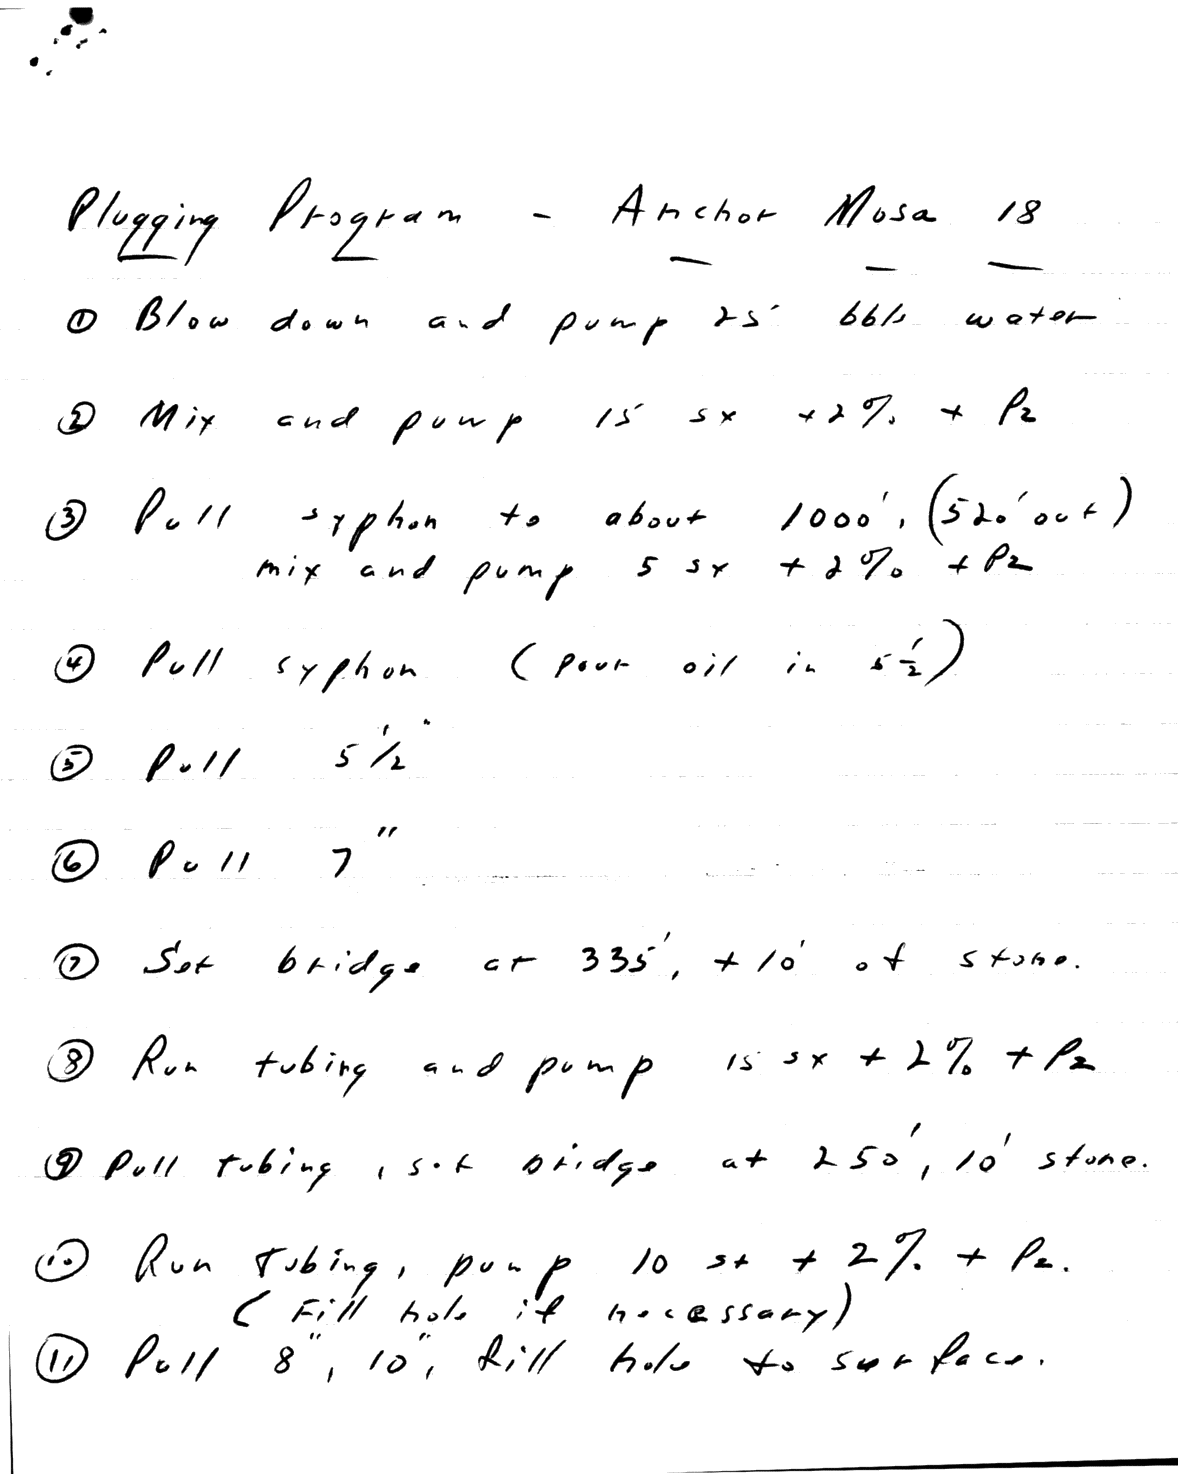 Plugging Program - Anchor Mosa 18
① Blow down and pump 25 bbls water
② Mix and pump 15 sx +2% + P2
③ Pull syphon to about 1000', (520' out)
mix and pump 5 sx + 2% + P2
④ Pull syphon (pour oil in 5 1/2)
⑤ Pull 5 1/2"
⑥ Pull 7"
⑦ Set bridge at 335', + 10' of stone.
⑧ Run tubing and pump 15 sx + 2% + P2
⑨ Pull tubing, set bridge at 250', 10' stone.
⑩ Run Tubing, pump 10 sx + 2% + P2.
(Fill hole if necessary)
⑪ Pull 8", 10", fill hole to surface.